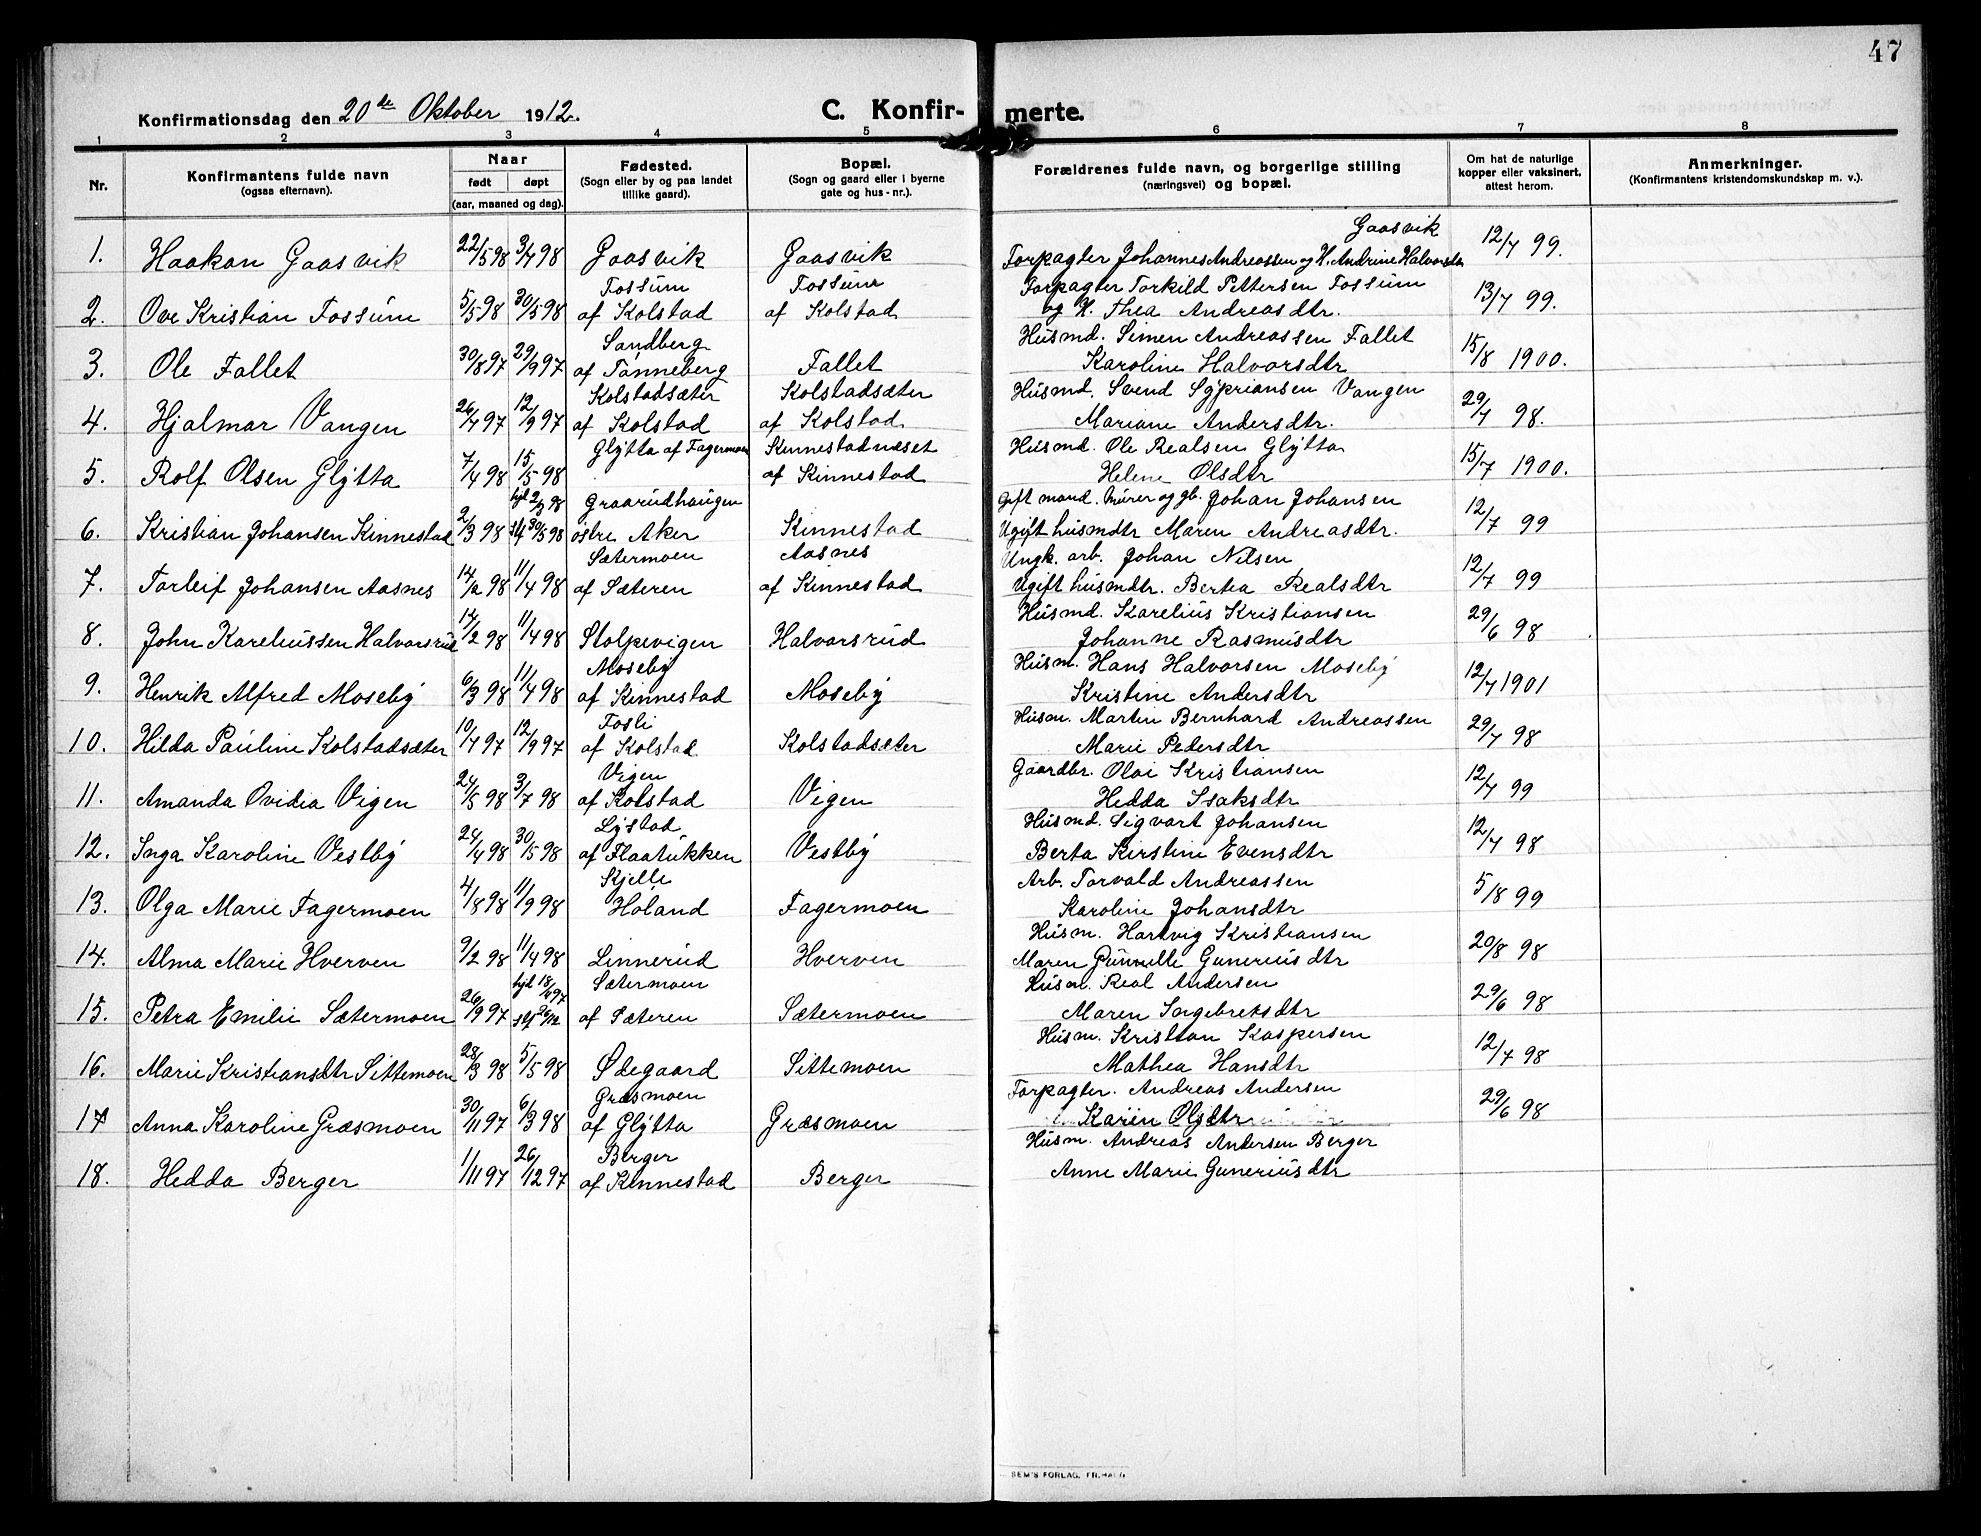 47
Konfirmationsdag den 20de Oktober 1912.
C. Konfir-
merte.
1 2 3 4 5 6 7 8
Nr.
Konfirmantens fulde navn
(ogsaa efternavn).
Naar
født døpt
(aar, maaned og dag).
Fødested.
(Sogn eller by og paa landet
tillike gaard).
Bopæl.
(Sogn og gaard eller i byerne
gate og hus-nr.).
Forældrenes fulde navn, og borgerlige stilling
(næringsvei) og bopæl.
Om hat de naturlige
kopper eller vaksinert,
attest herom.
Anmerkninger.
(Konfirmantens kristendomskundskap m. v.).
Gaasvik
1. Haakon Gaasvik 22/5 98 3/7 98 Gaasvik Gaasvik Forpagter Johannes Andreassen og H. Andrine Halvorsdtr 12/7 99.
Fossum Fossum Forpagter Torkild Pettersen Fossum
2. Ove Kristian Fossum 5/5 98 30/5 98 af Kolstad af Kolstad og H. Thea Andreasdtr. 13/7 99.
Sandberg Husmd. Simen Andreassen Fallet
3. Ole Fallet 30/8 97 29/9 97 af Tønneberg Fallet Karoline Halvorsdtr 15/8 1900.
Kolstadsæter Kolstadsæter Husmd. Svend Sypriansen Vangen
4. Hjalmar Vangen 26/7 97 12/9 97 af Kolstad af Kolstad Mariane Andersdtr. 29/7 98.
Glytta af Fagermoen Kinnestadnæset Husmd. Ole Realsen Glytta
5. Rolf Olsen Glytta 7/4 98 15/5 98 af Kinnestad Helene Olsdtr 15/7 1900.
hjd 2/3 98 Graarudhaugen Gift mand. Murer og gb. Johan Johansen
6. Kristian Johansen Kinnestad 2/3 98 st 30/5 98 östre Aker Kinnestad Ugift husmdtr Maren Andreasdtr. 12/7 99
Sætermoen Aasnes Ungk. arb. Johan Nilsen
7. Torleif Johansen Aasnes 14/2 98 11/4 98 af Sæteren af Kinnestad Ugift husmdtr. Bertea Realsdtr 12/7 99
Husmd. Karelius Kristiansen
8. John Kareliussen Halvorsrud 14/2 98 11/4 98 Stolpevigen Halvorsrud Johanne Rasmusdtr 29/6 98
Moseby Husm. Hans Halvorsen Moseby
9. Henrik Alfred Moseby 6/3 98 11/4 98 af Kinnestad Moseby Kristine Andersdtr 12/7 1901
Fosli Husm. Martin Bernhard Andreassen
10. Hilda Pauline Kolstadsæter 10/7 97 12/9 97 af Kolstad Kolstadsæter Marie Pedersdtr 29/7 98
Vigen Gaardbr. Olai Kristiansen
11. Amanda Ovidia Vigen 24/5 98 3/7 98 af Kolstad Vigen Hedda Isaksdtr 12/7 99
Lystad Husmd. Sigvart Johansen
12. Inga Karoline Vestby 24/4 98 30/5 98 af Flaatukken Vestby Berta Kirstine Evensdtr 12/7 98
Kjelle Arb. Torvald Andreassen
13. Olga Marie Fagermoen 4/8 98 11/9 98 Höland Fagermoen Karoline Johansdtr 5/8 99
Husm. Hartvig Kristiansen
14. Alma Marie Hverven 9/2 98 11/4 98 Linnerud Hverven Maren Gunerius dtr 20/8 98
hjd 18/ 97 Sætermoen Husm. Real Andersen
15. Petra Emilie Sætermoen 26/9 97 st 26/12 af Sæteren Sætermoen Maren Ingebretsdtr 29/6 98
Husm. Kristian Kaspersen
16. Marie Kristiansdtr Sittemoen 28/3 98 5/5 98 Ødegaard Sittemoen Mathea Hansdtr 12/7 98
Græsmoen Forpagter. Andreas Andersen
17 Anna Karoline Græsmoen 30/11 97 6/3 98 af Glytta Græsmoen Karen Olsdtr 29/6 98
Berger Husm. Andreas Andersen Berger
18. Hedda Berger 1/11 97 26/12 97 af Kinnestad Berger Anne Marie Guneriusdtr
SEM'S FORLAG, FR.HALD.